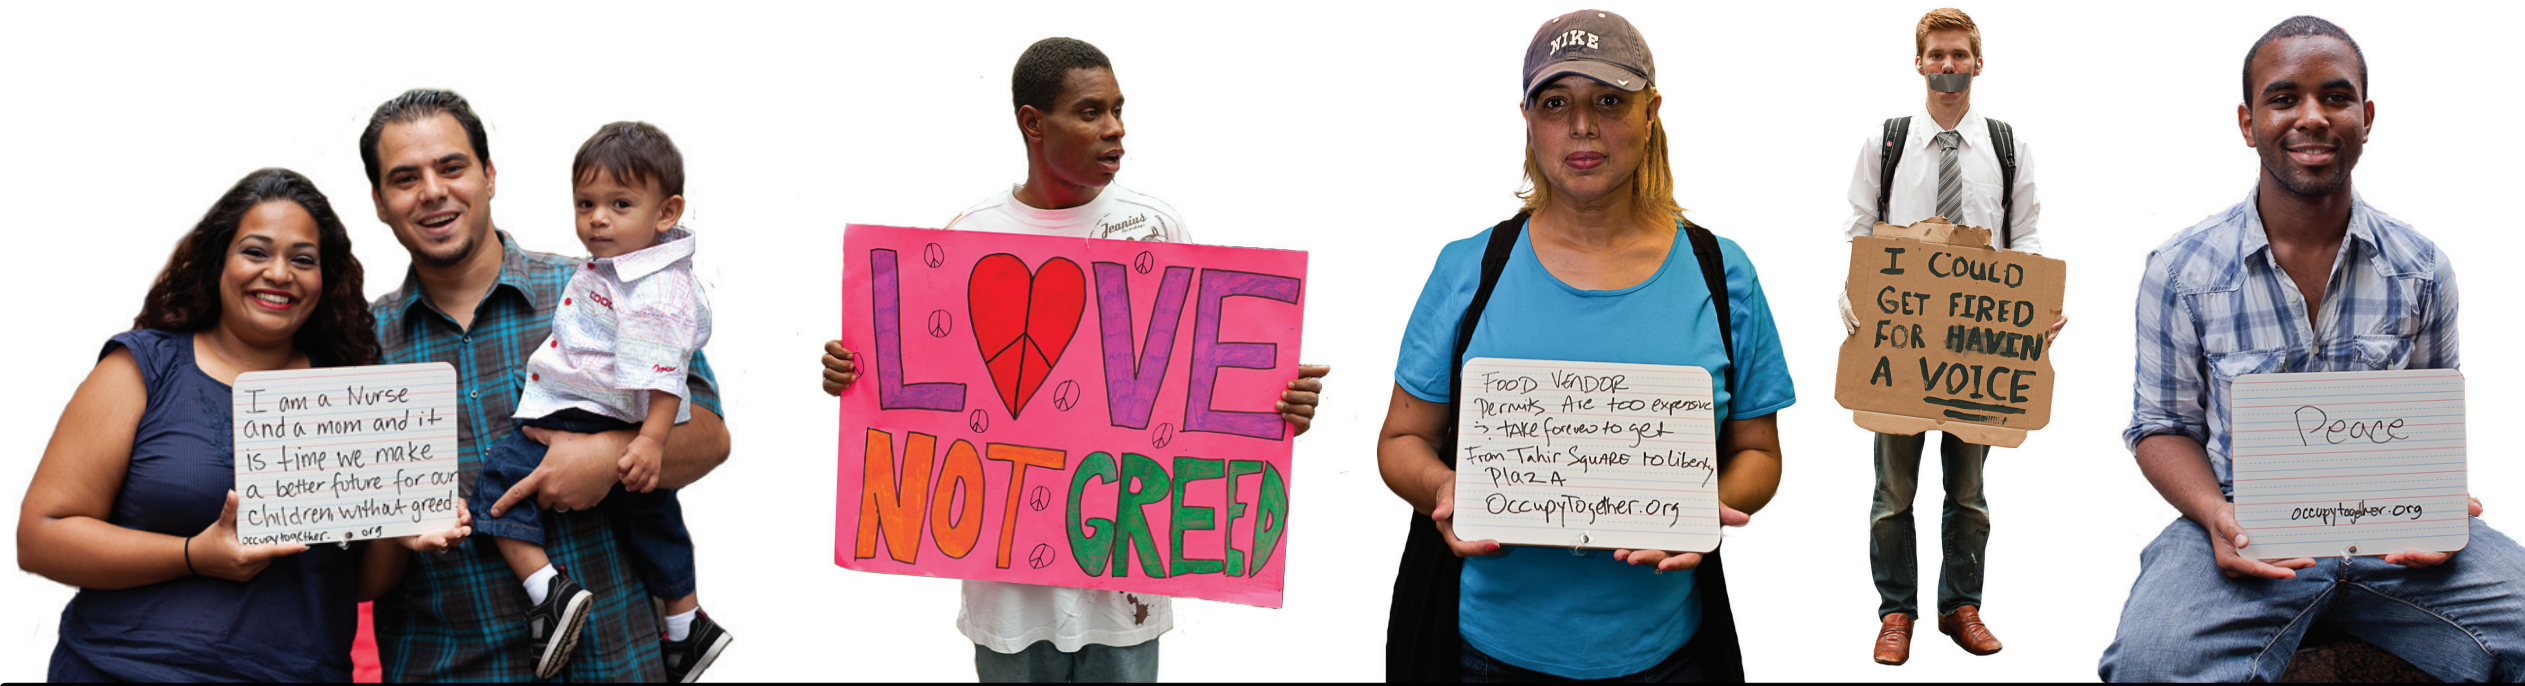 I am a Nurse
and a mom and it
is time we make
a better future for our
children, without greed.
occupytogether.org
Jeanius
LOVE
NOT GREED
NIKE
FOOD VENDOR
Permits Are too expensive
take forever to get
From Tahir SQUARE to Liberty
PlazA
OccupyTogether.org
I COULD
GET FIRED
FOR HAVIN
A VOICE
Peace
occupytogether.org